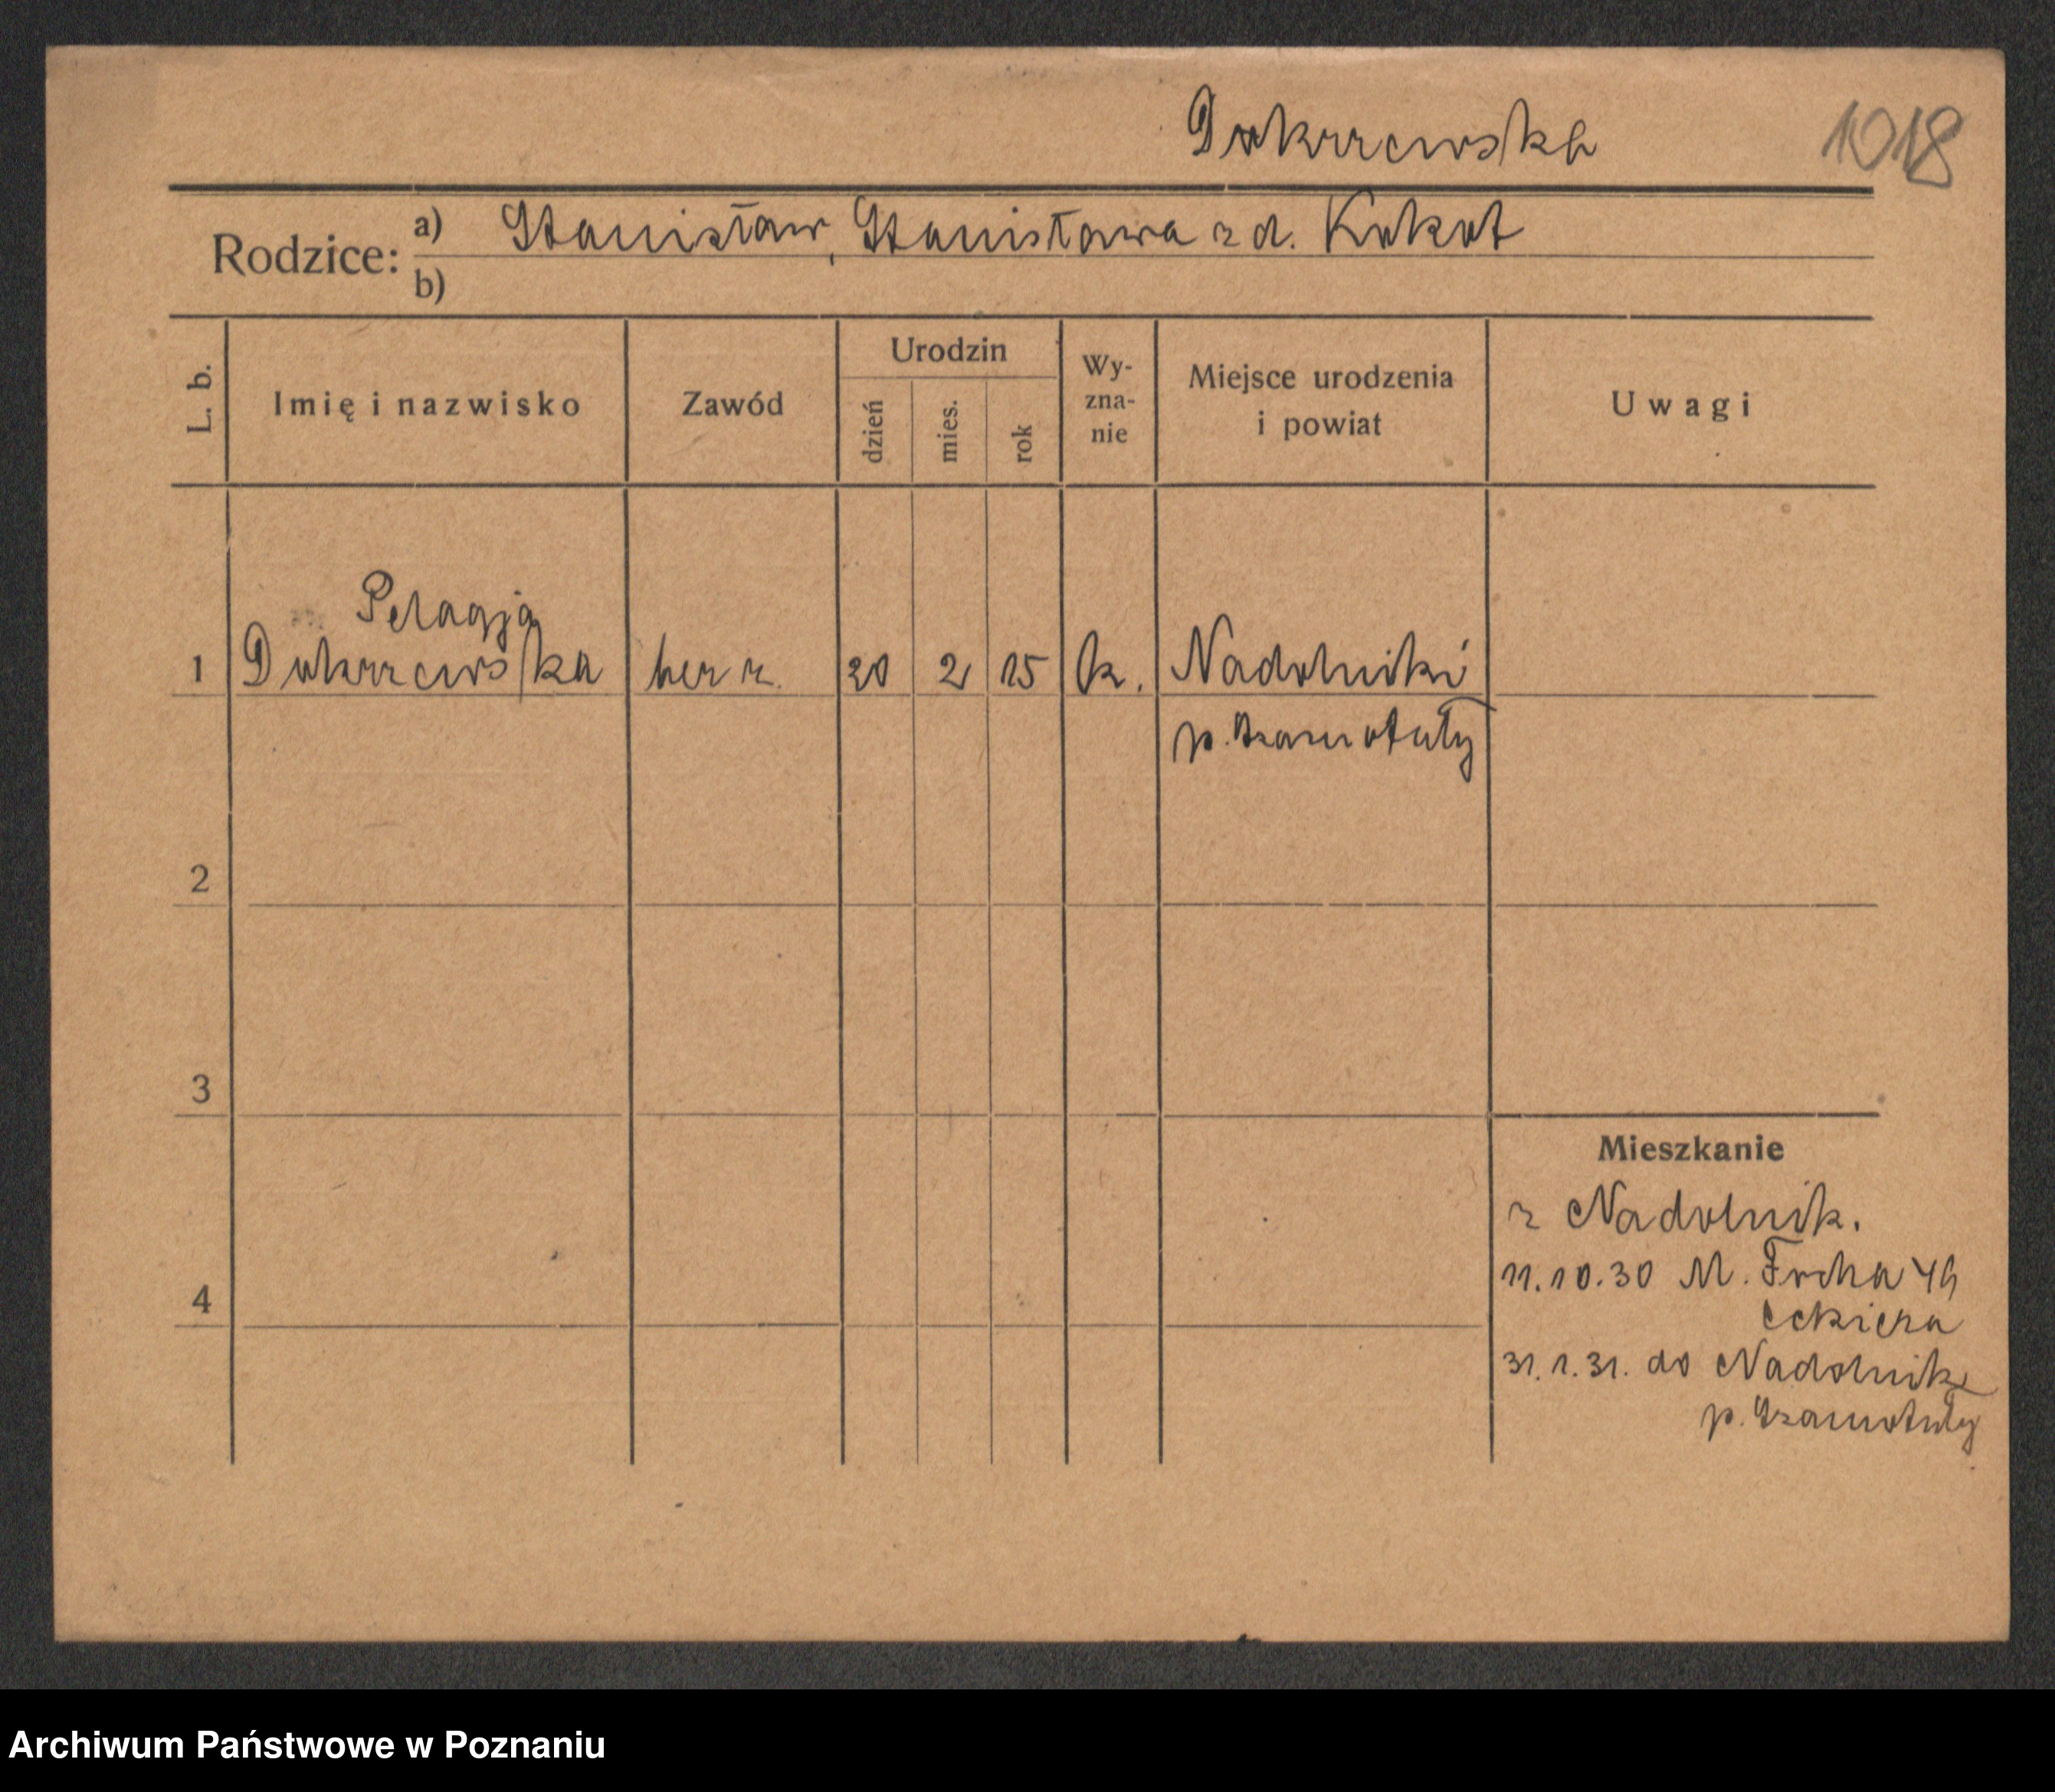 Dokrzewska 1018
Rodzice: a) Stanisław, Stanisława z d. Kokot
b)
L. b. Imię i nazwisko Zawód Urodzin dzień mies. rok Wy-zna-nie Miejsce urodzenia i powiat Uwagi
Pelagja
1 Dokrzewska bez z. 20 2 15 k. Nadolniki
p. Szamotuły
2
3
Mieszkanie
z Nadolnik.
11.10.30 M. Focha 49
4
31.1.31. do Nadolnik
p. Szamotuły
Archiwum Państwowe w Poznaniu